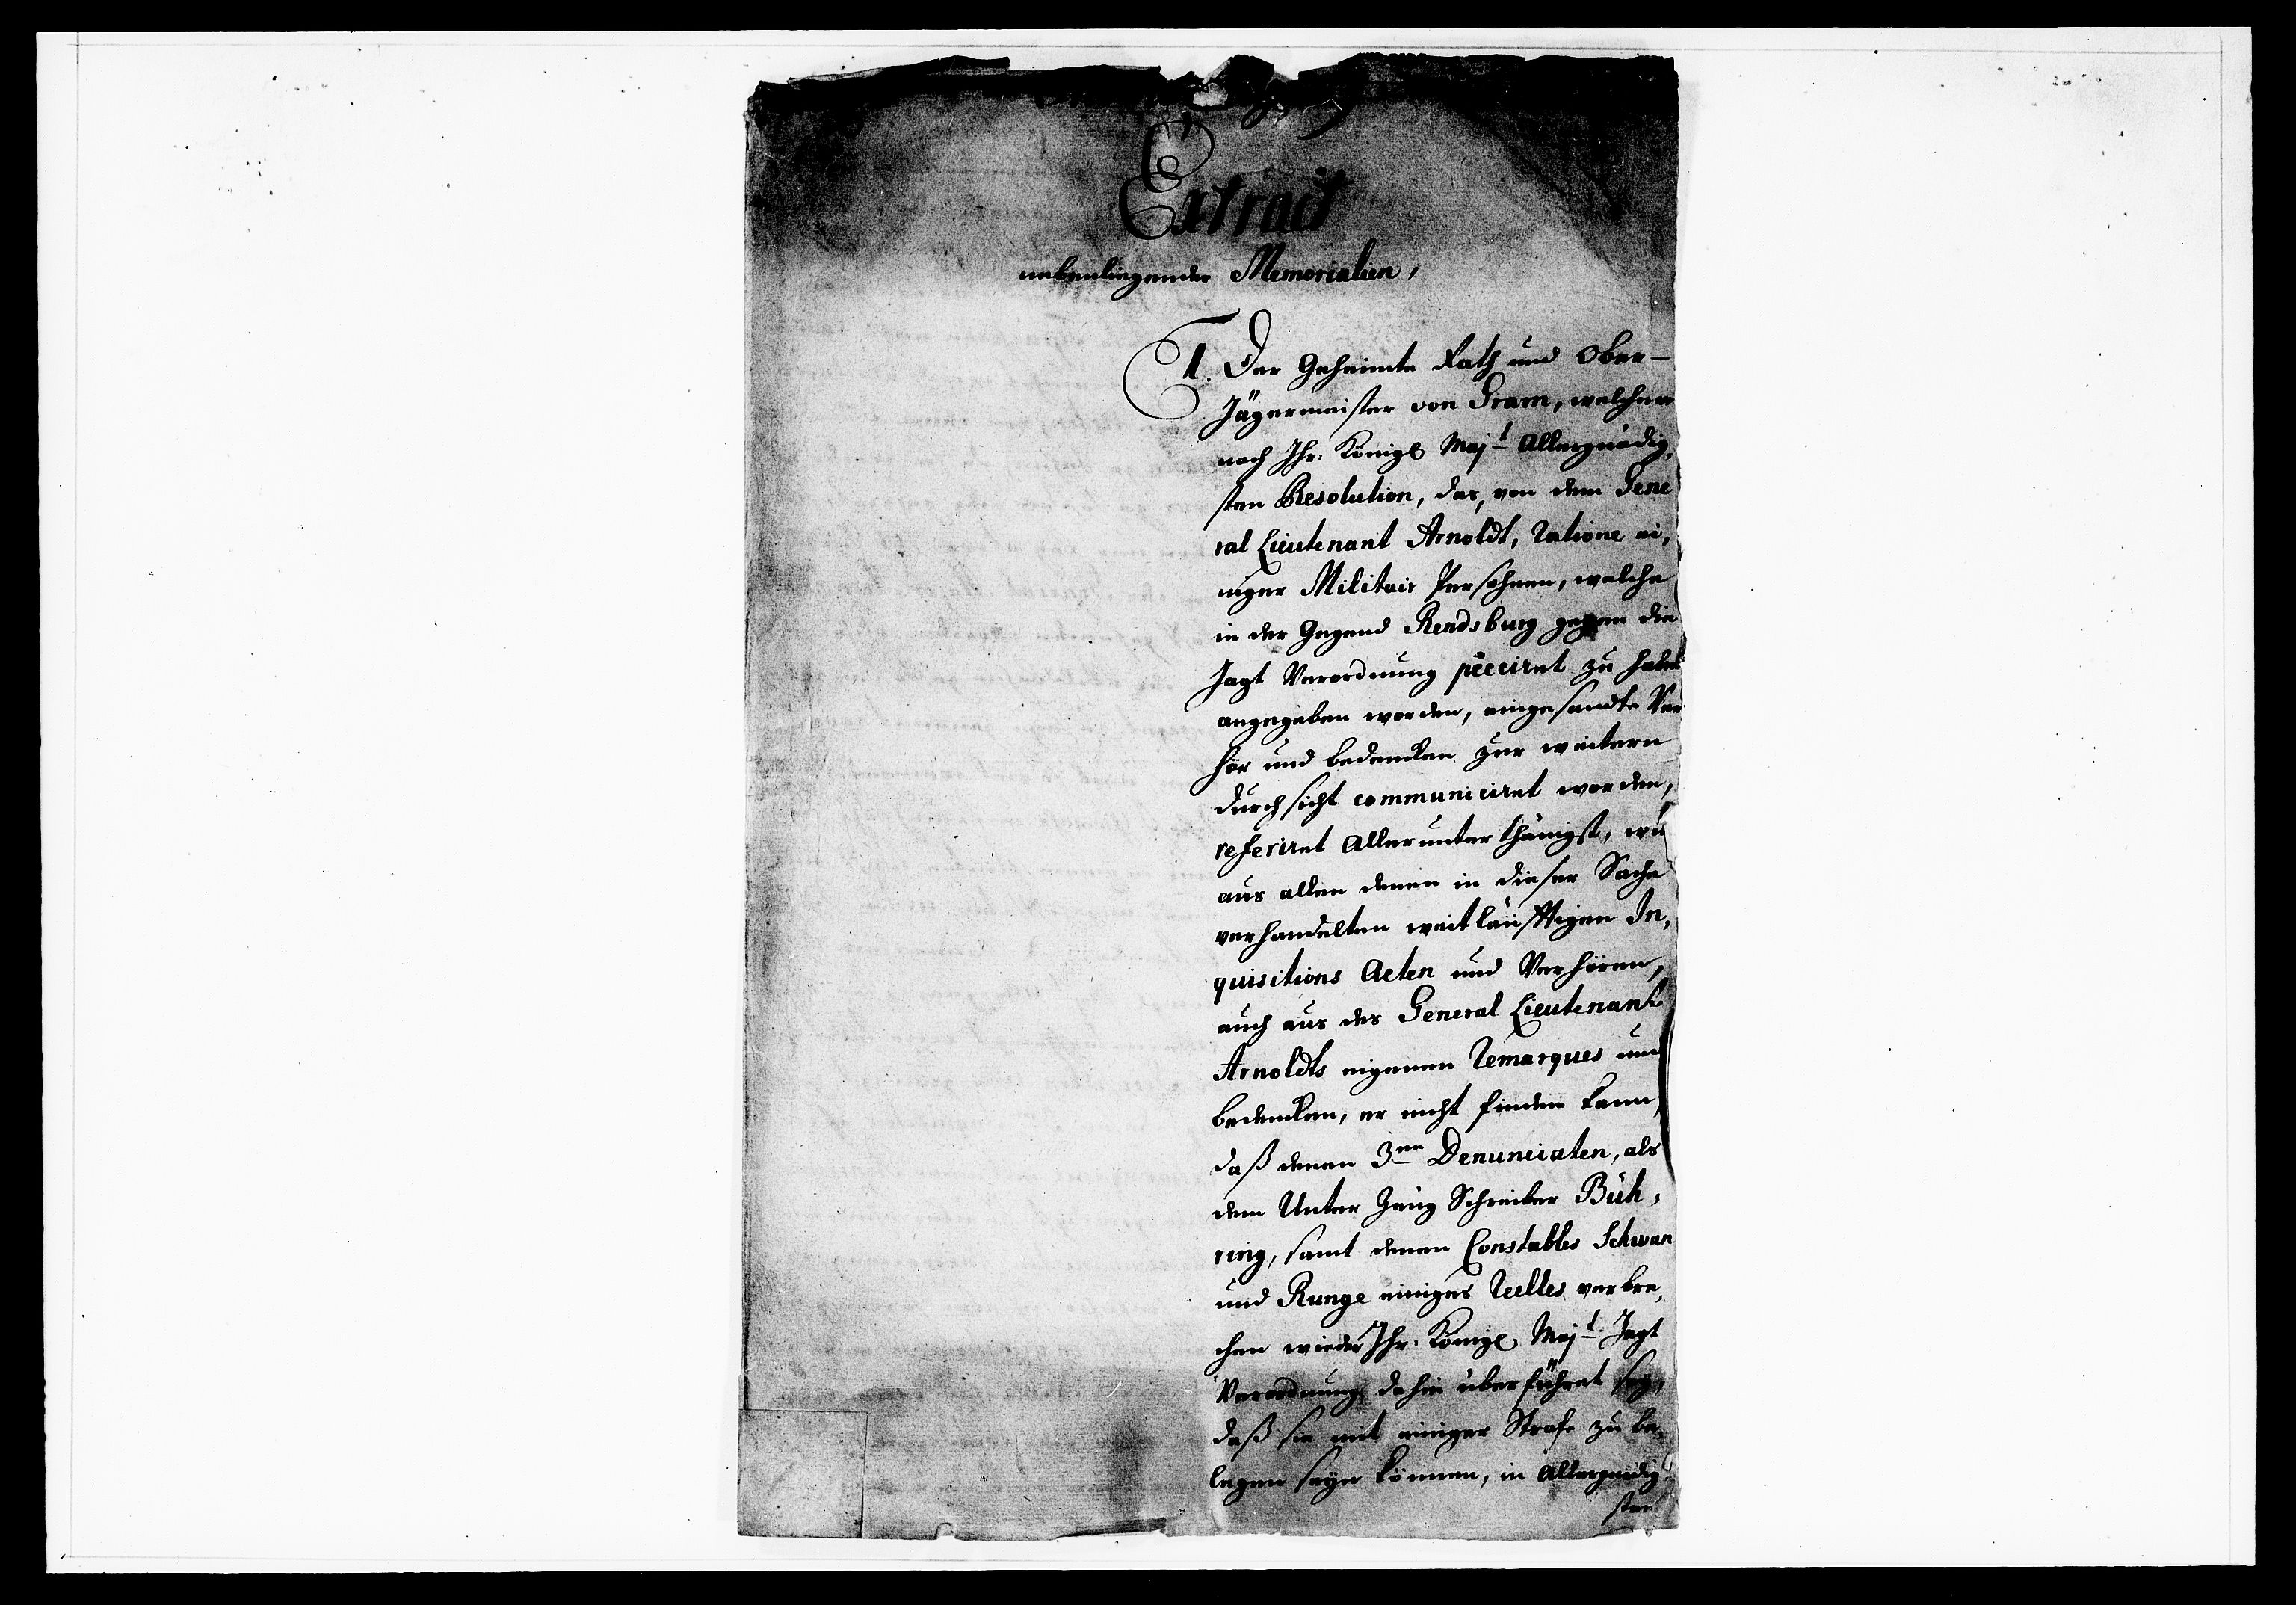 Extract
nebenliegender Memorialien,
1. Der Geheimte Rath und Ober-
Jägermeister von Gram, welchem
nach Ihr: Königl Majt Allergnädig,
sten Resolution, das, von dem Gene
ral Lieutenant Arnoldt, ratione ei,
niger Militair Persohnen, welche
in der Gegend Rendsburg gegen die
Jagt Verordnung pecciret zu haben
angegeben worden, eingesandte Ver
hör und bedencken zur weitern
durchsicht communiciret worden,
referiret Allerunterthänigst, wie
aus allen denen in dieser Sache
verhandelten weitläufftigen In,
quisitions Acten und Verhören,
auch aus des General Lieutenant
Arnoldts eigenen Remarques und
bedencken, er nicht finden kann,
daß denen 3en Denunciaten, als
dem Unter Zeug Schreiber Büh,
ring, samt denen Constables Schwan
und Runge einiges reelles verbre,
chen wieder Ihr: Königl Majt Jagt
Verordnung dahin überführet sey,
daß sie mit einiger Strafe zu be,
legen seyn können, in Allergnädig,
sten